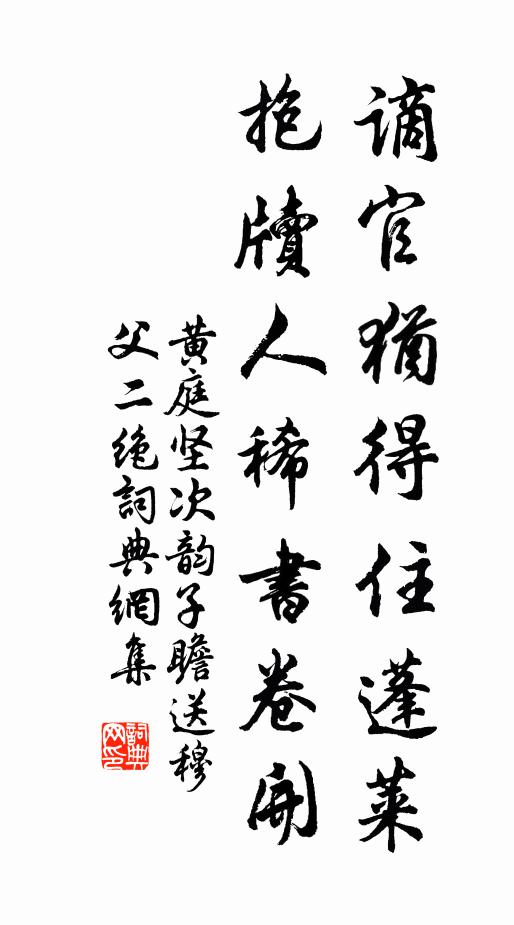 谪官猶得住蓬萊
抱牘人稀書卷開
黄庭坚次韵子瞻送穆
父二绝詞典網集
詞典
网印